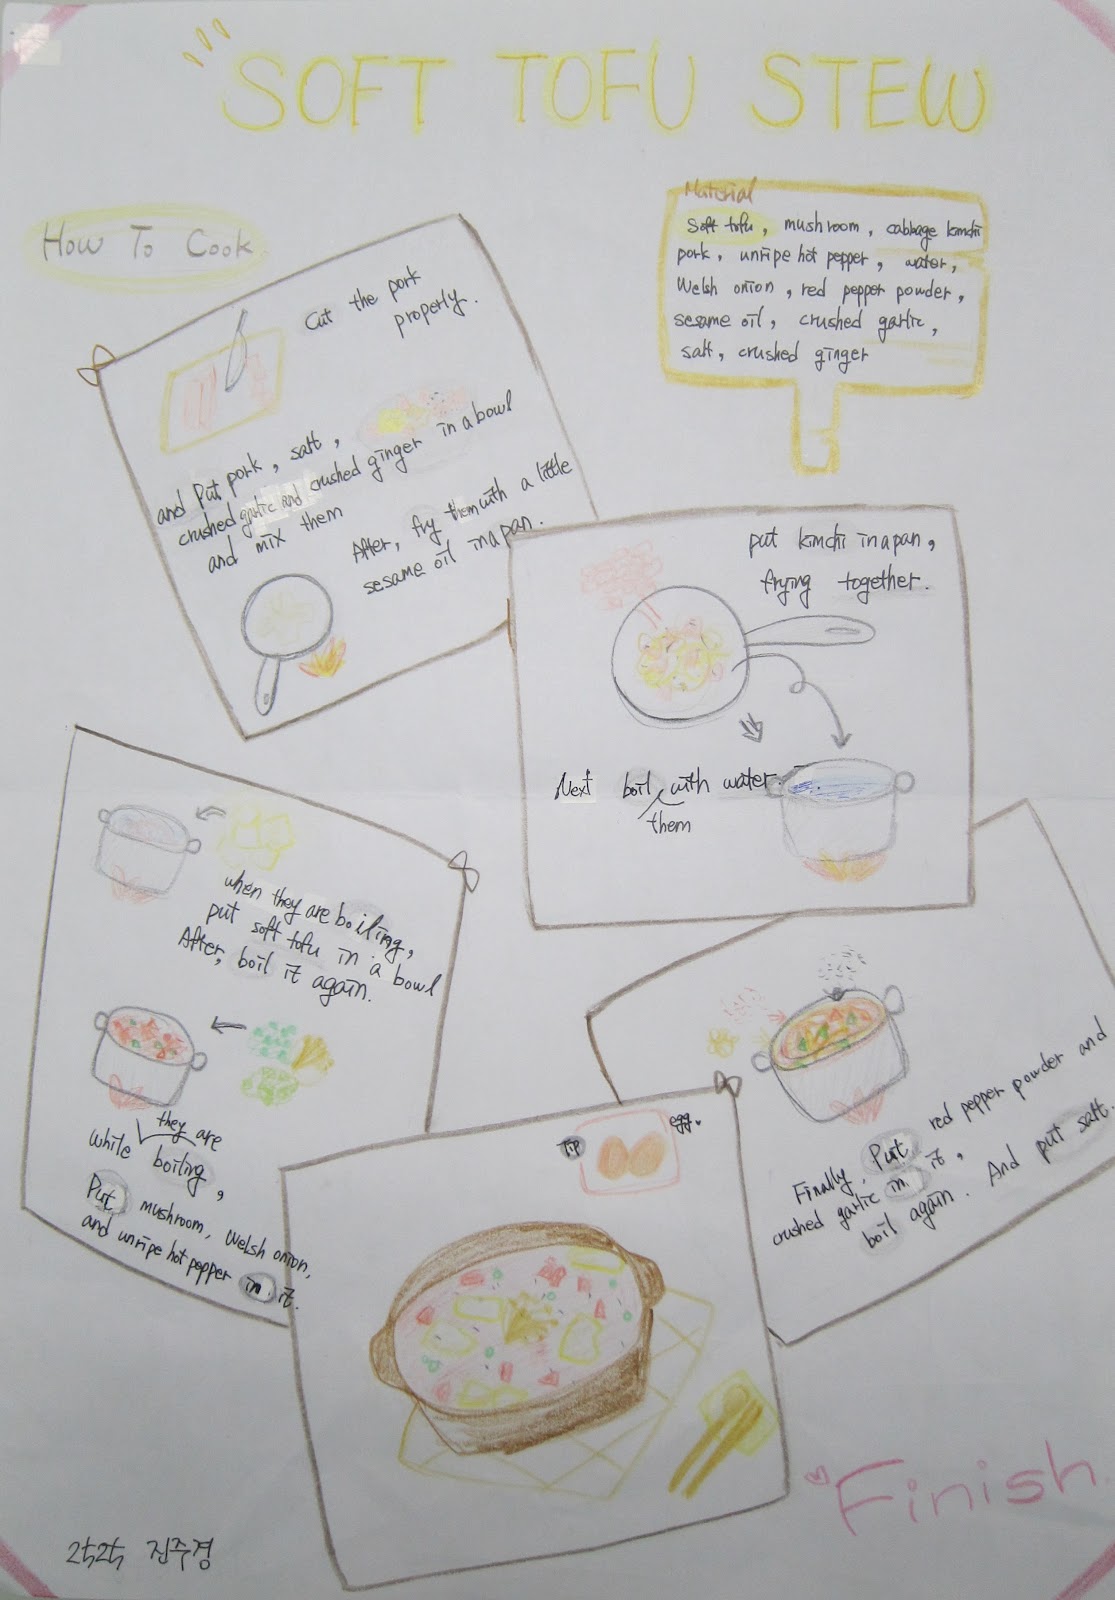 SOFT TOFU STEW
How To Cook
Material
Soft tofu, mushroom, cabbage kimchi
pork, unripe hot pepper, water,
Welsh onion, red pepper powder,
sesame oil, crushed garlic,
salt, crushed ginger
Cut the pork
properly.
and Put pork, salt,
crushed garlic and crushed ginger in a bowl
and mix them
After, fry them with a little
sesame oil in a pan.
put kimchi in a pan,
frying together.
Next boil with water.
them
when they are boiling,
put soft tofu in a bowl
After, boil it again.
they are
while boiling,
Put mushroom, Welsh onion,
and unripe hot pepper in it.
Finally, Put red pepper powder and
crushed garlic in it,
boil again. And put salt.
Tip
egg.
Finish
진주경